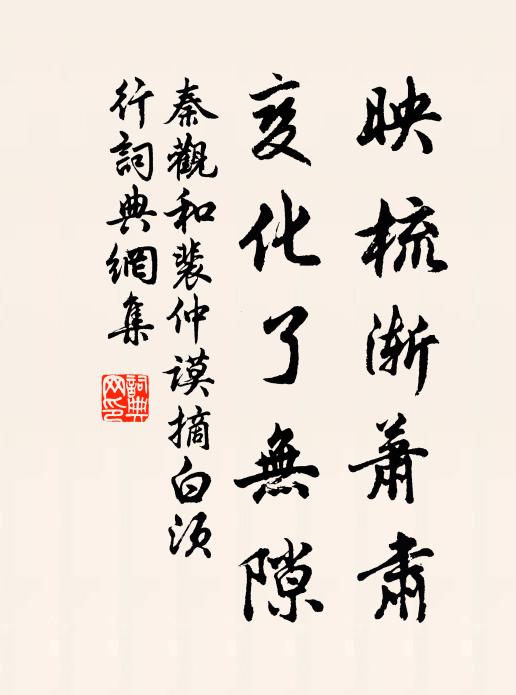 映梳漸蕭肅
变化了無隙
秦觀和裴仲謨摘白须
行詞典網集
詞典
网印